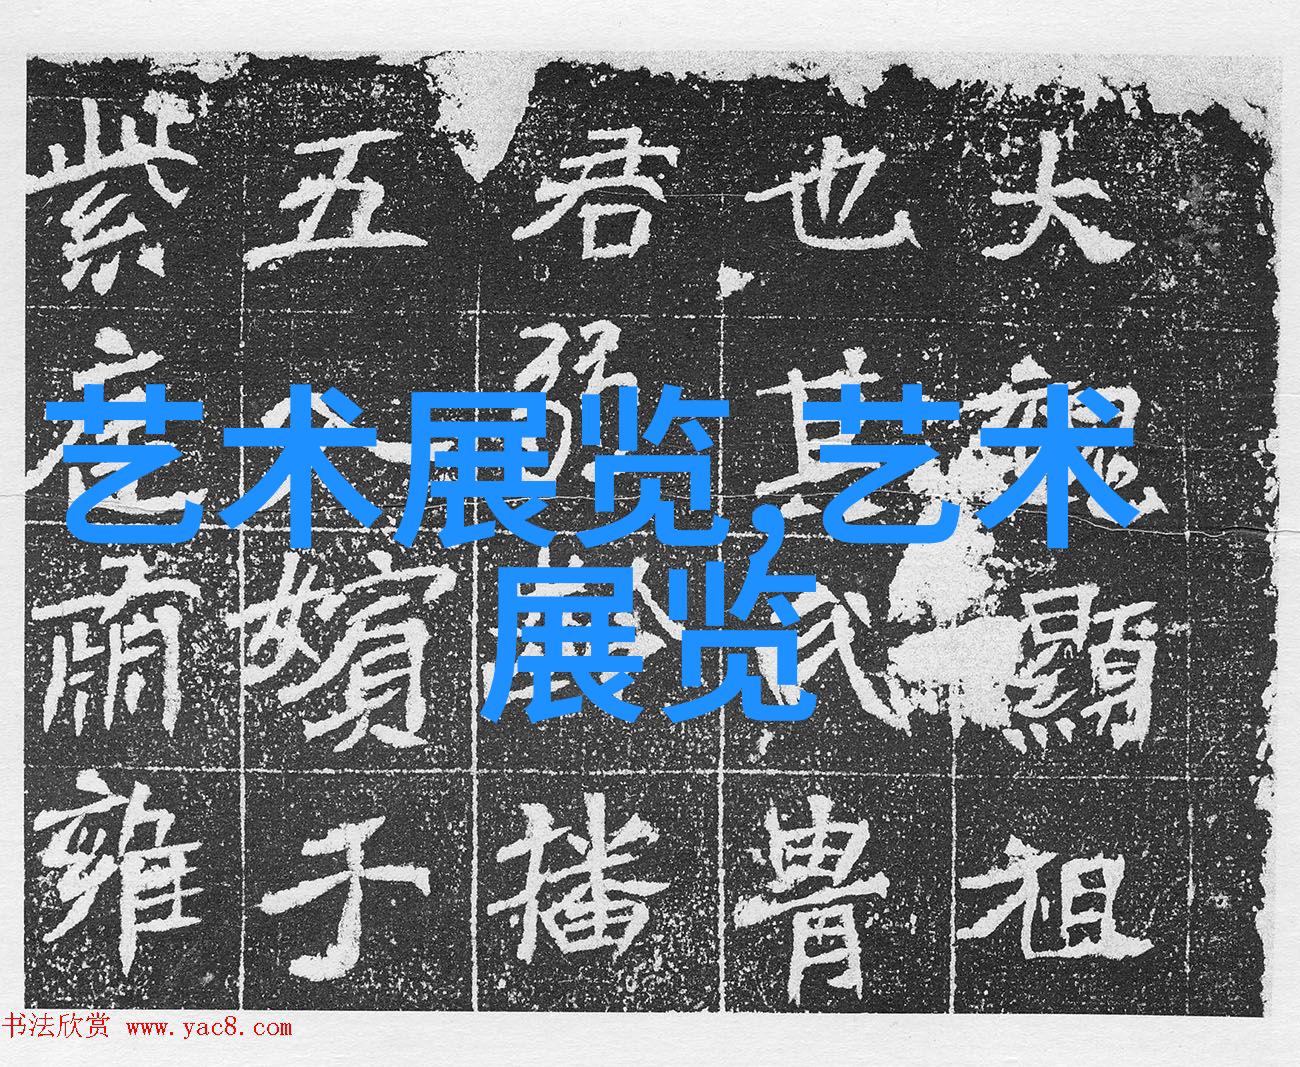 大魏顯祖
也其武胄
君弱播
五嬪于
紫庭肅雍
艺术展览,艺术
展览
书法欣赏 www.yac8.com